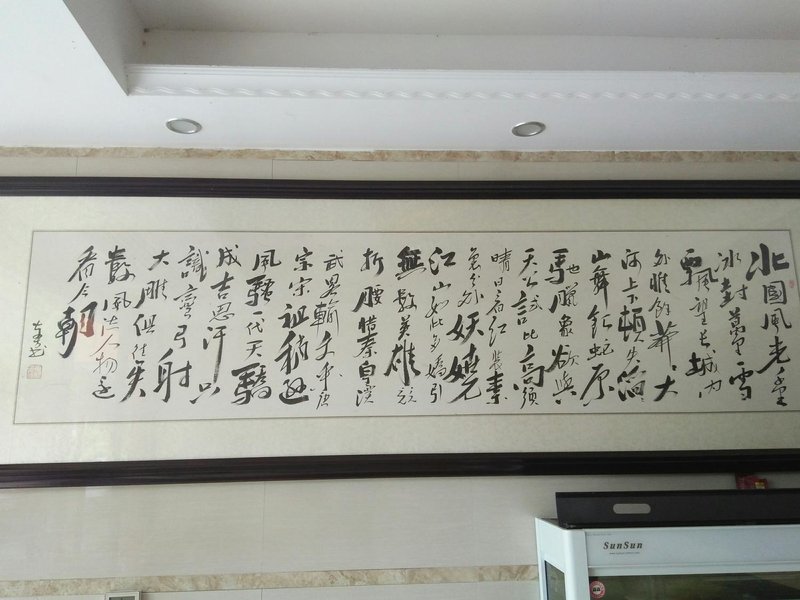 北國風光千里
冰封萬里雪
飄望長城内
外惟餘莽莽大
河上下頓失滔滔
山舞銀蛇原
馳蠟象欲與
天公試比高須
晴日看紅裝素
裹分外妖嬈
江山如此多嬌引
無數英雄競
折腰惜秦皇漢
武略輸文采唐
宗宋祖稍遜
風騷一代天驕
成吉思汗只
識彎弓射
大雕俱往矣
數風流人物還
看今朝
SunSun